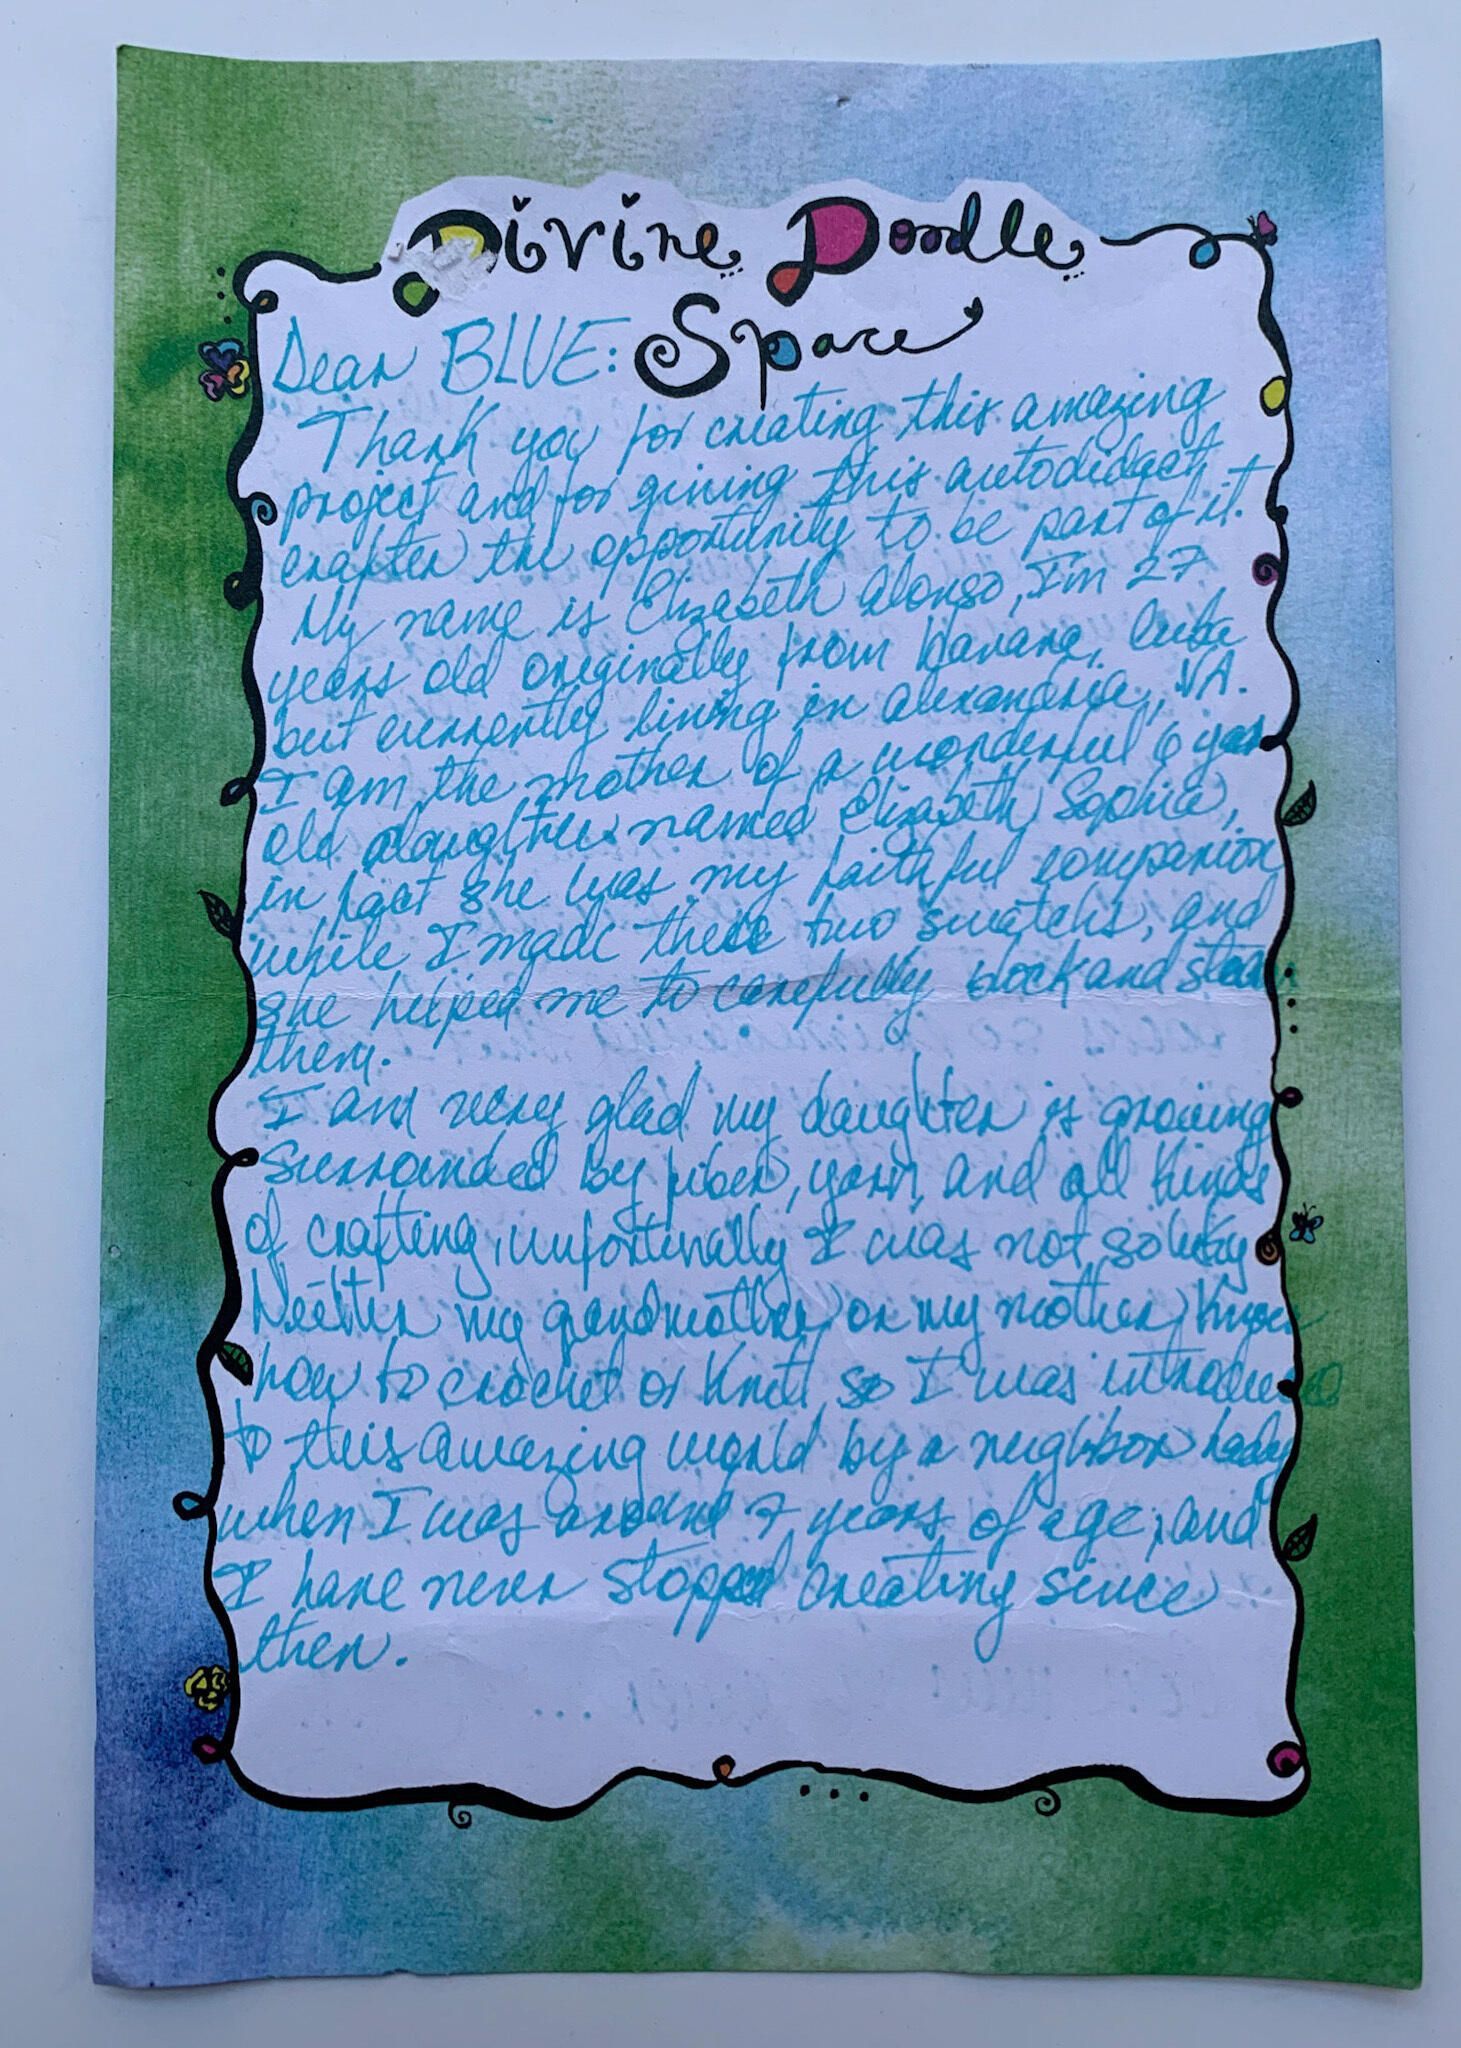 Divine Doodle
Space
Dear BLUE:
Thank you for creating this amazing
project and for giving this autodidact
crafter the opportunity to be part of it.
My name is Elizabeth Alonso, I'm 27
years old originally from Havana, Cuba
but currently living in Alexandria, VA.
I am the mother of a wonderful 6 year
old daughter named Elizabeth Sophia,
in fact she was my faithful companion
while I made these two swatchs, and
she helped me to carefully block and steam
them.
I am very glad my daughter is growing
Surrounded by fiber, yarn, and all kinds
of crafting, unfortunally I was not so lucky
Neither my grandmother or my mother know
how to crochet or Knit, so I was introduced
to this amazing world by a neighbor lady
when I was around 7 years of age, and
I have never stopped creating since
then.